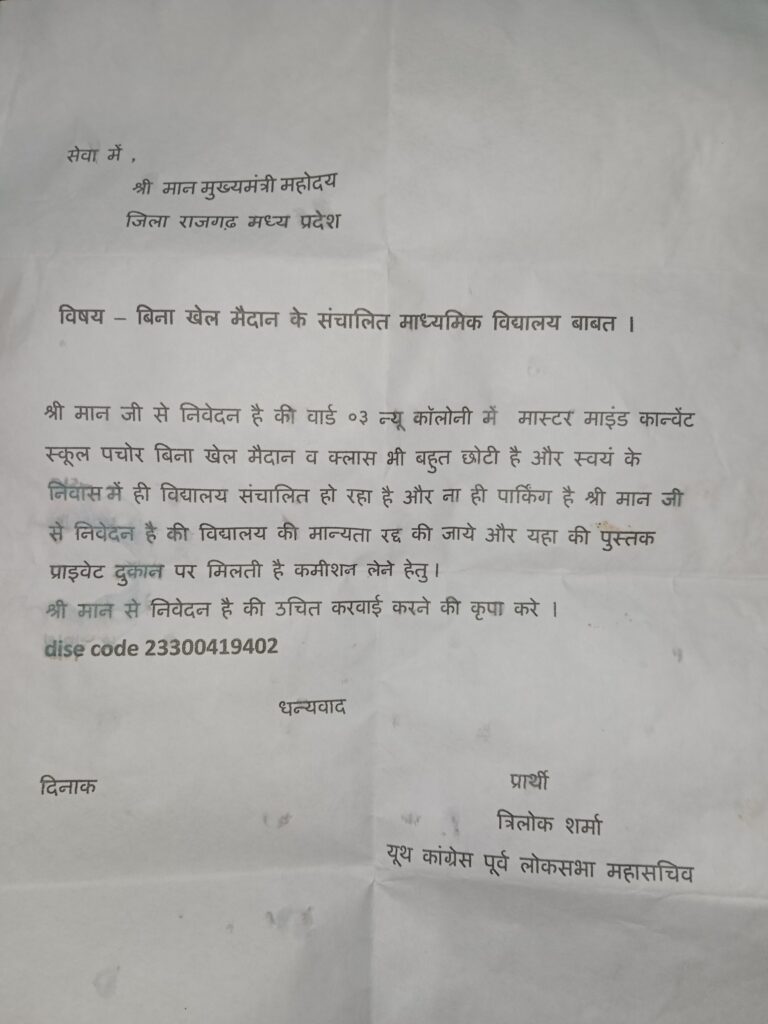 सेवा में ,
श्री मान मुख्यमंत्री महोदय
जिला राजगढ़ मध्य प्रदेश
विषय – बिना खेल मैदान के संचालित माध्यमिक विद्यालय बाबत ।
श्री मान जी से निवेदन है की वार्ड ०३ न्यू कॉलोनी में मास्टर माइंड कान्वेंट
स्कूल पचोर बिना खेल मैदान व क्लास भी बहुत छोटी है और स्वयं के
निवास में ही विद्यालय संचालित हो रहा है और ना ही पार्किंग है श्री मान जी
से निवेदन है की विद्यालय की मान्यता रद्द की जाये और यहा की पुस्तक
प्राइवेट दुकान पर मिलती है कमीशन लेने हेतु ।
श्री मान से निवेदन है की उचित करवाई करने की कृपा करे ।
dise code 23300419402
धन्यवाद
दिनाक
प्रार्थी
त्रिलोक शर्मा
यूथ कांग्रेस पूर्व लोकसभा महासचिव